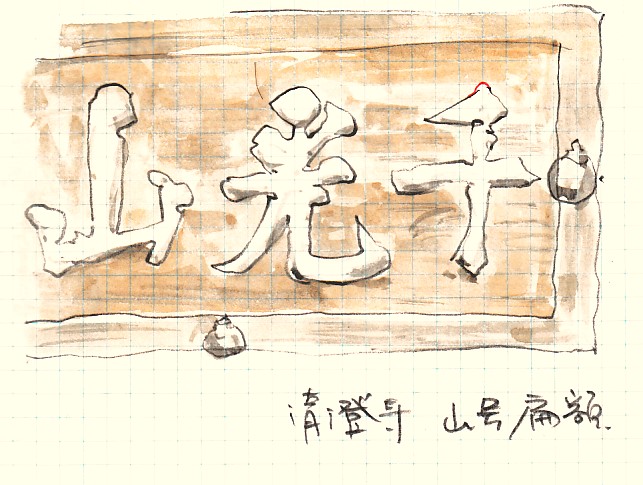 千光山
清澄寺 山号扁額